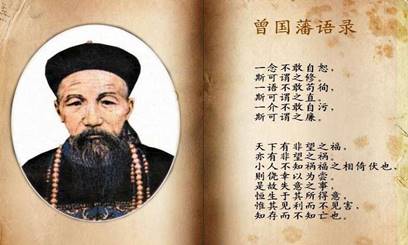 曾国藩语录
一念不敢自恕,
斯可谓之修。
一语不敢苟徇,
斯可谓之直。
一介不敢自污,
斯可谓之廉。
天下有非望之福,
亦有非望之祸。
小人不知祸福之相倚伏也,
则侥幸以为尝。
是故失意之事,
恒生于其所得意,
惟其见利而不见害,
知存而不知亡也。